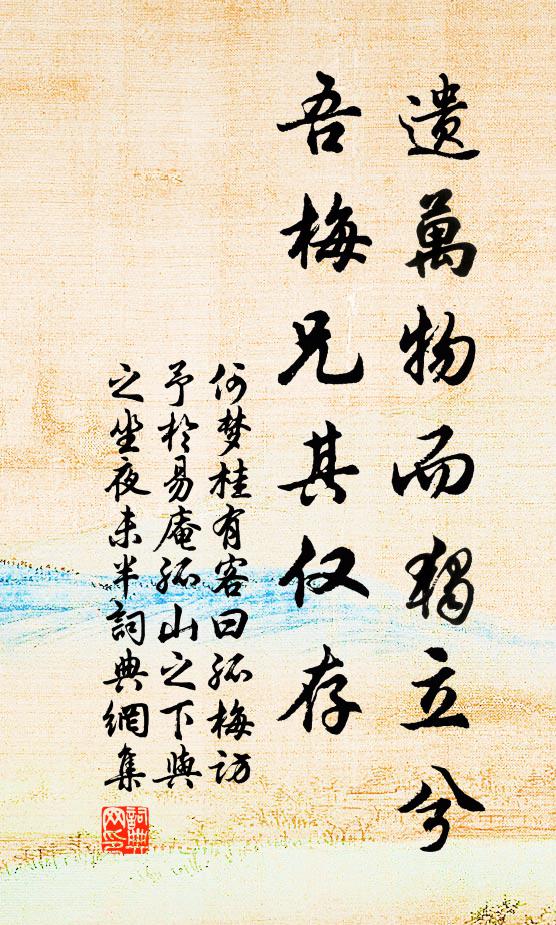 遺萬物而獨立兮
吾梅兄其仅存
何梦桂有客曰孤梅访
予於易庵孤山之下與
之坐夜未半詞典網集
詞典网印